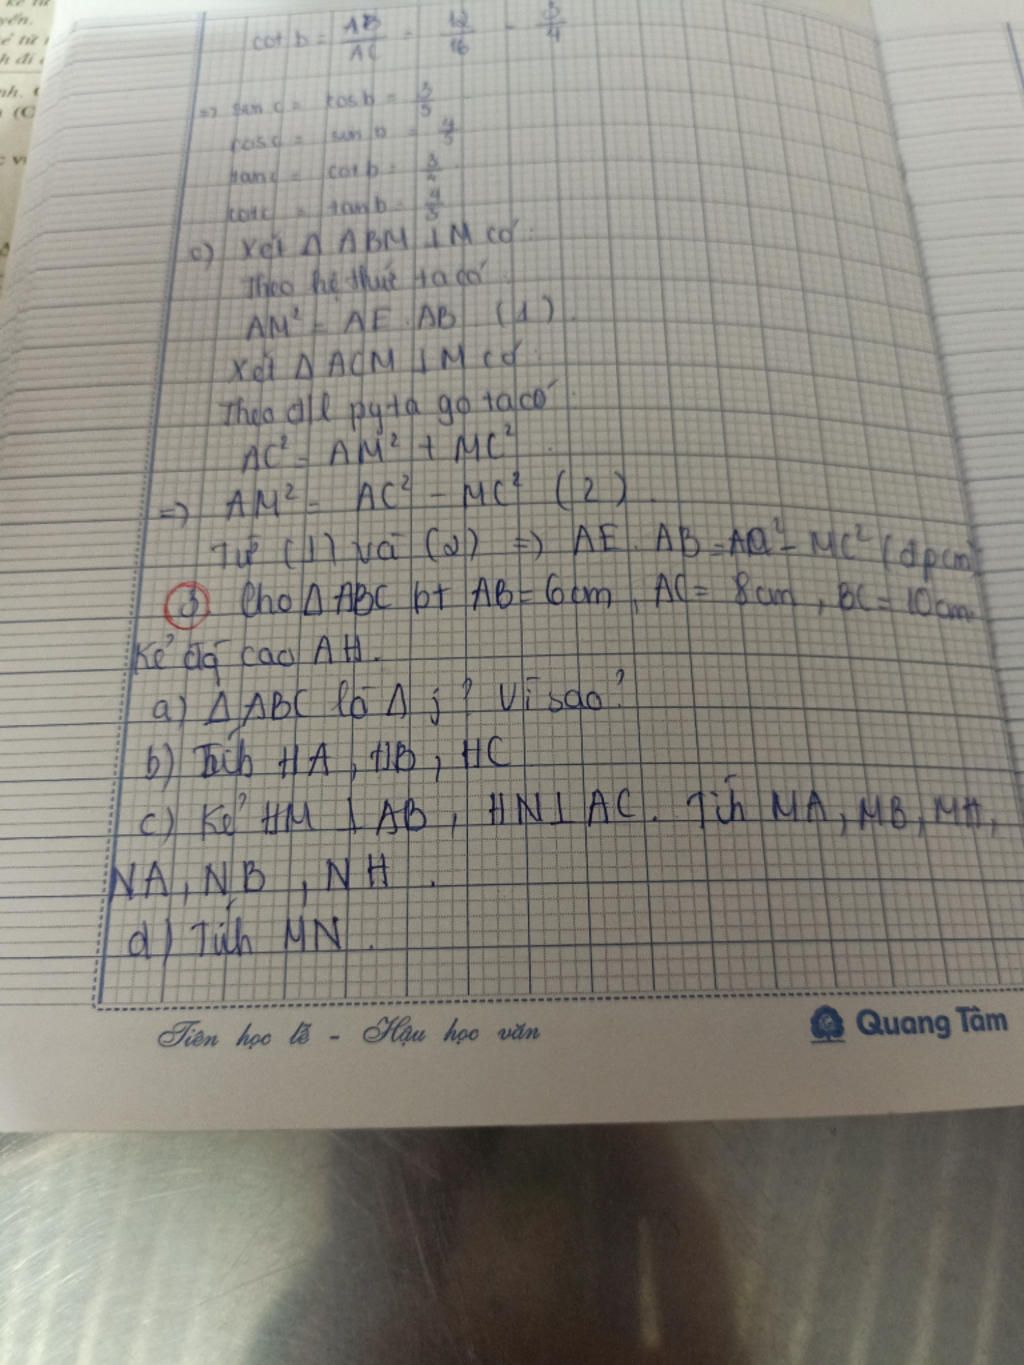 cot b = AB/AC = 12/16 = 3/4
=> sin c = cos b = 3/5
cos c = sin b = 4/5
tan c = cot b = 3/4
cot c = tan b = 4/3
c) Xét Δ ABM ⊥ M có:
Theo hệ thức ta có
AM² = AE . AB (1).
Xét Δ ACM ⊥ M có:
Theo đ/l pytago ta có
AC² = AM² + MC².
=> AM² = AC² - MC² (2).
Từ (1) và (2) => AE . AB = AC² - MC² (đpcm)
3. Cho Δ ABC bt AB = 6cm, AC = 8cm, BC = 10cm.
Kẻ đg cao AH.
a) Δ ABC là Δ j? Vì sao?
b) Tính HA, HB, HC
c) Kẻ HM ⊥ AB, HN ⊥ AC. Tính MA, MB, MH,
NA, NB, NH.
d) Tính MN.
Tiên học lễ - Hậu học văn
Quang Tâm